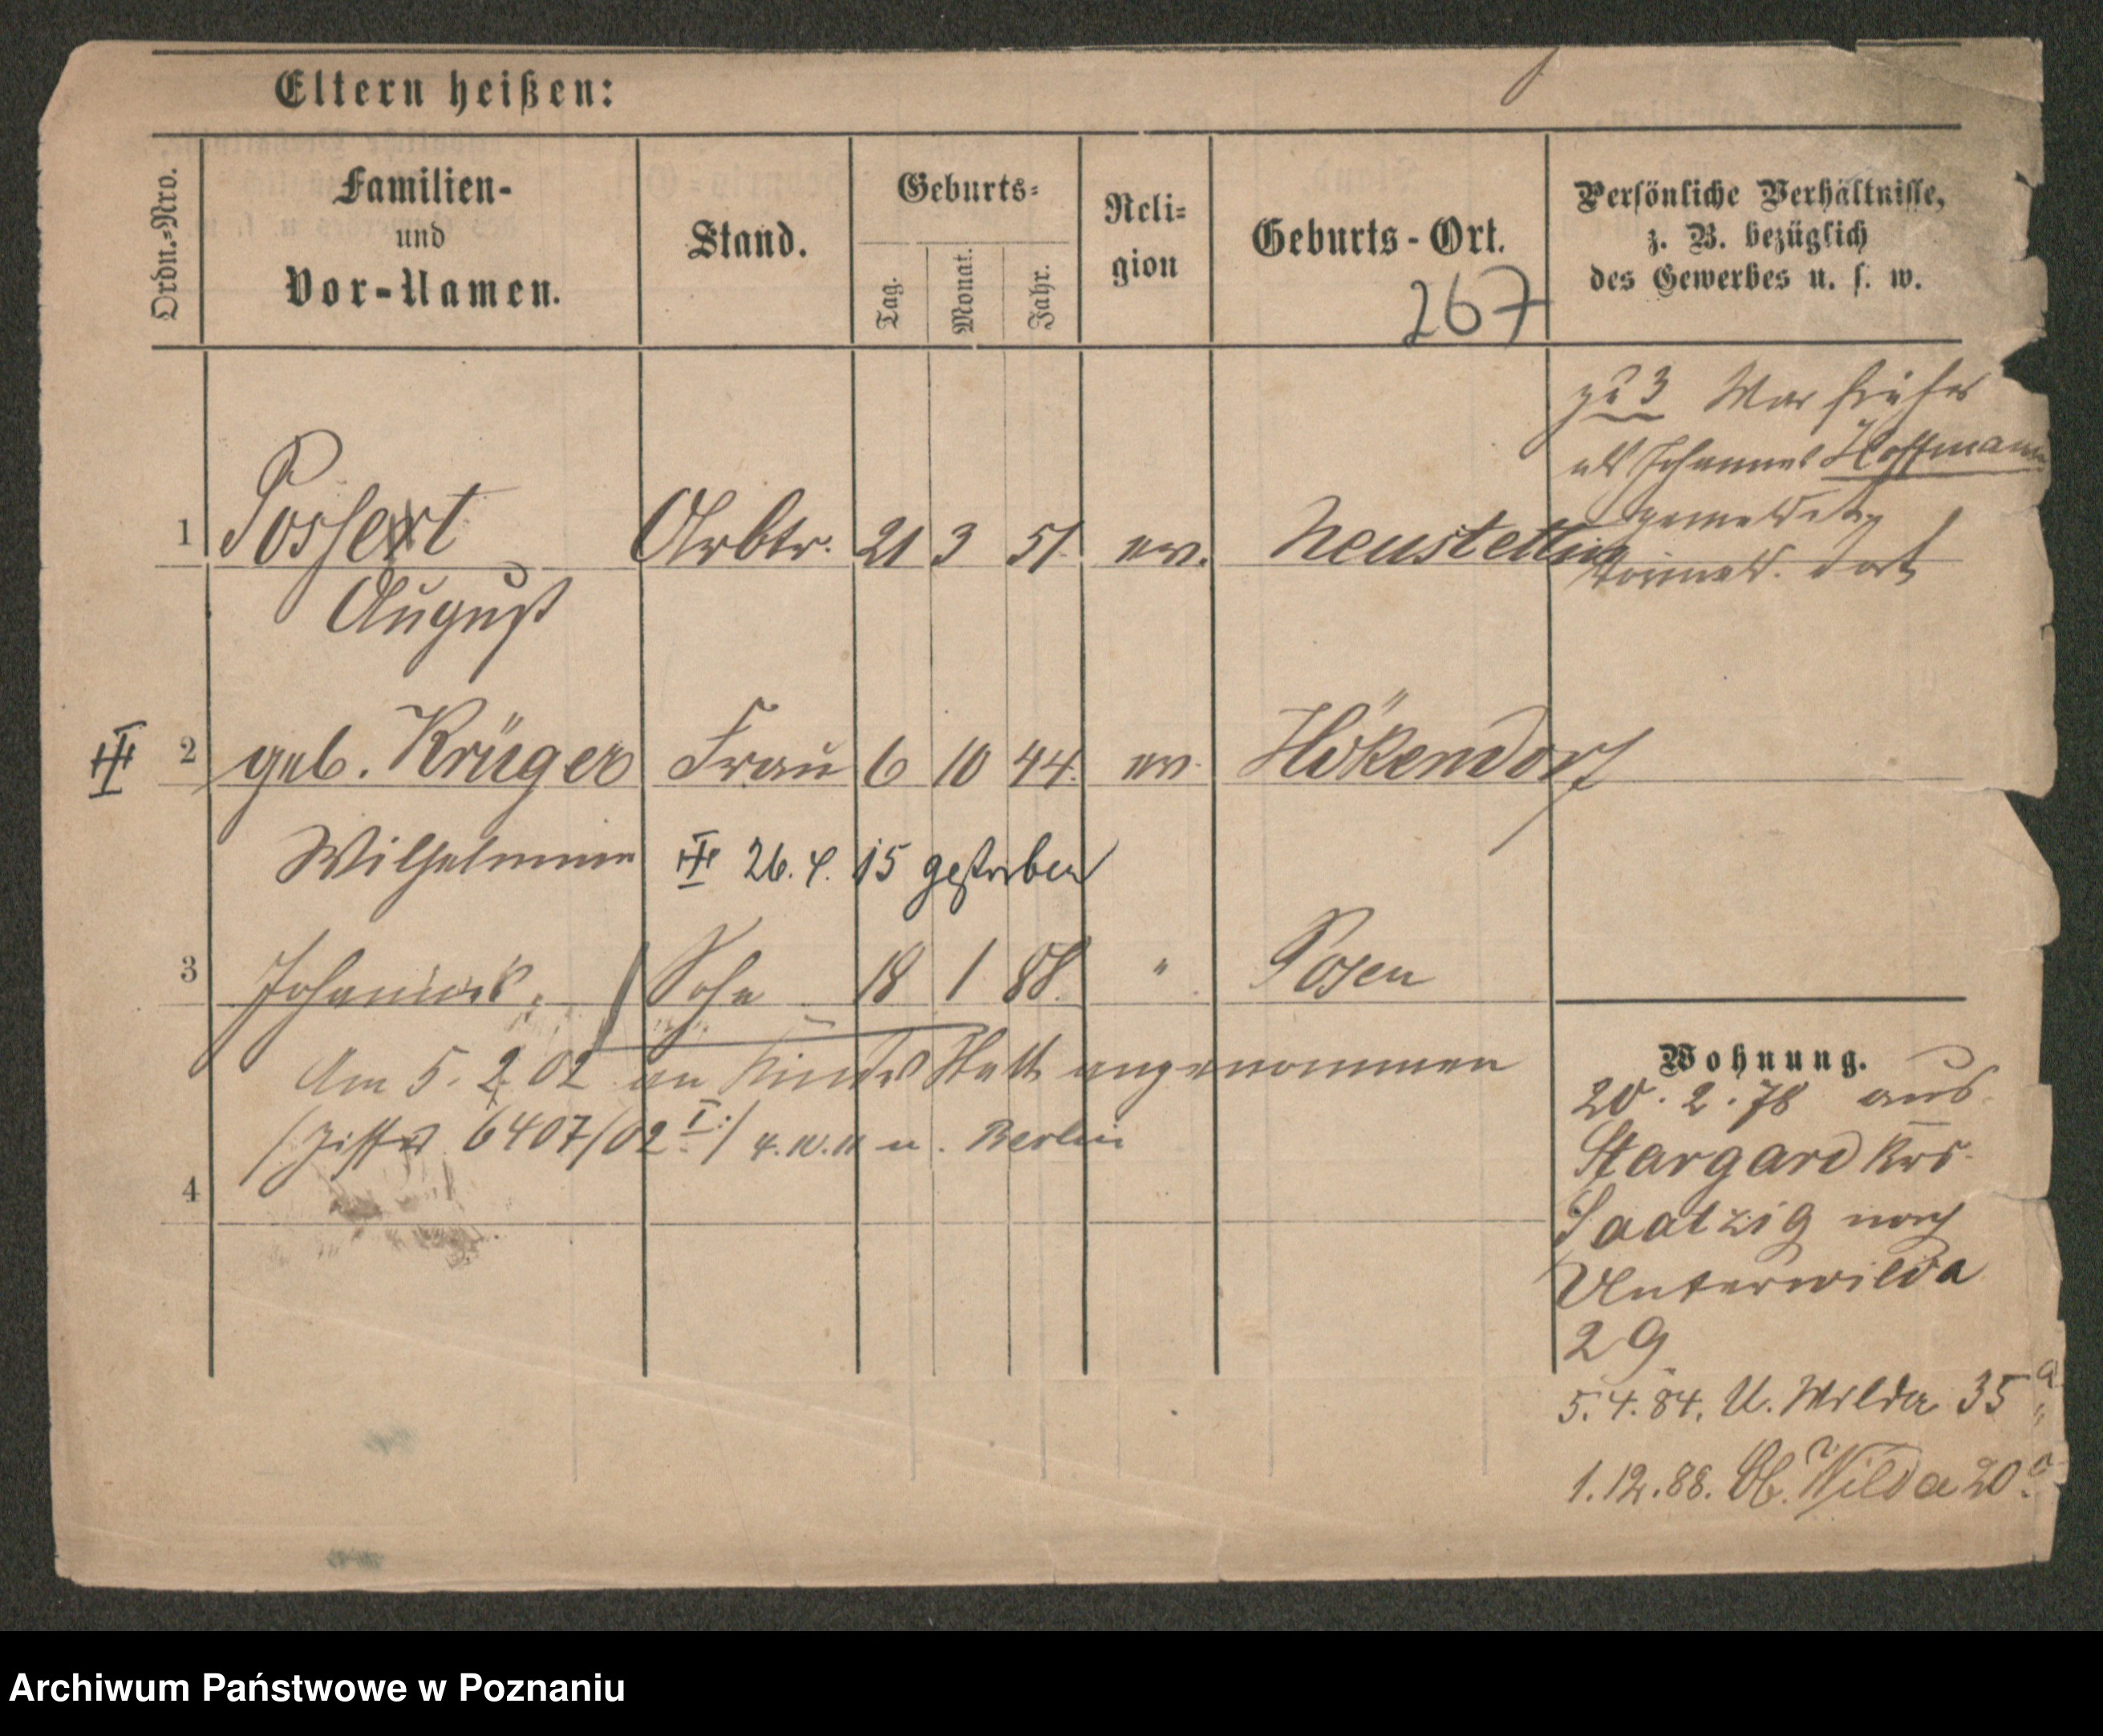 Eltern heißen:
Ordn.=Nro.
Familien-
und
Vor-Namen.
Stand.
Geburts=
Tag.
Monat.
Jahr.
Reli=
gion
Geburts-Ort.
267
Persönliche Verhältnisse,
z. B. bezüglich
des Gewerbes u. s. w.
zu 3 War früher
als Johannes Hoffmann
gemeldet
dort
1 Possert Arbtr. 21 3 51. ev. Neustettin
August
III 2 geb. Krüger Frau 6 10 44. ev. Hökendorf
Wilhelmine III 26. 4. 15 gestorben
3 Johannes. Sohn 18 1 88. " Posen
Am 5. 2. 02 an Kindes Statt angenommen
6407/02 I:/ 4. 10. 11 n. Berlin
4
Wohnung.
20. 2. 78 aus
Stargard Krs.
Saatzig nach
Unterwilda
29.
5. 4. 84. U. Wilda 35
1. 12. 88. Ob. Wilda 20.
Archiwum Państwowe w Poznaniu